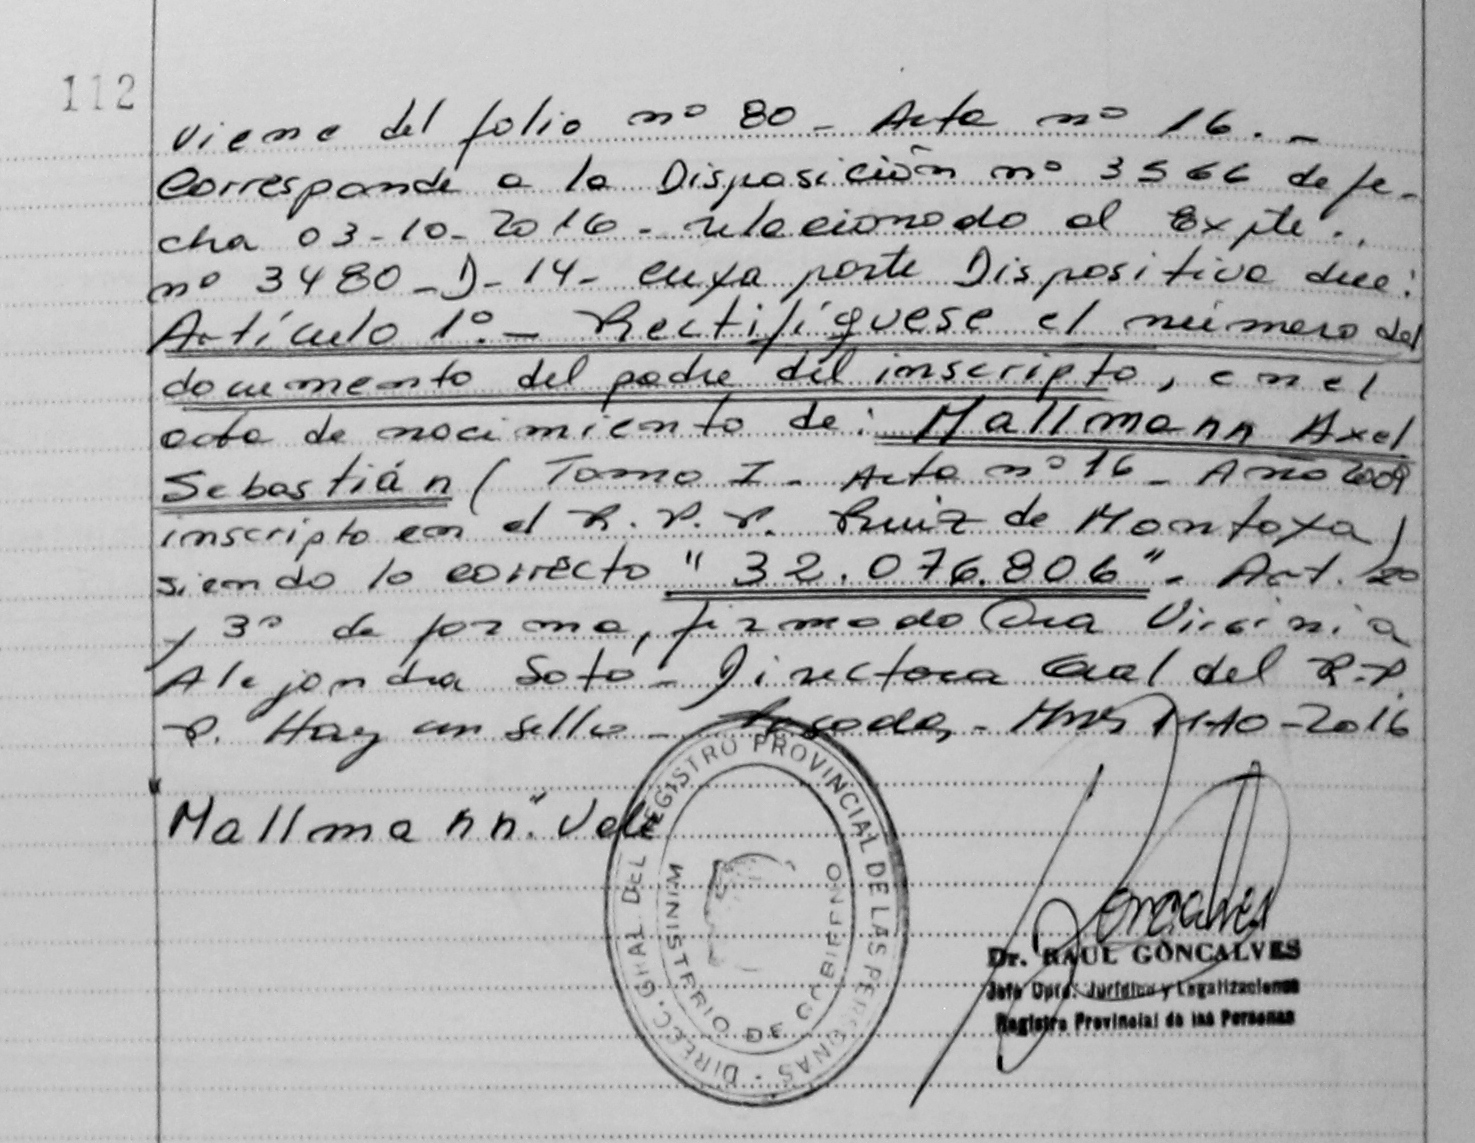 112
viene del folio nº 80 - Acta nº 16. -
Corresponde a la Disposición nº 3566 de fe-
cha 03-10-2016 - relacionado al Expte..
nº 3480-D-14- cuya parte Dispositiva dice:
Artículo 1º - Rectifíquese el número del
documento del padre del inscripto, en el
acta de nacimiento de: Mallmann Axel
Sebastián ( Tomo I - Acta nº 16 - Año 2009
inscripto en el R.P.P. Ruiz de Montoya )
siendo lo correcto "32.076.806" - Art. 2º
y 3º de forma, firmado Dra Virginia
Alejandra Soto - Directora Gral del R.P.
P. Hay un sello - Posadas, - Mnes 11-10-2016
"Mallmann" Vale
DIREC. GRAL DEL REGISTRO PROVINCIAL DE LAS PERSONAS -
MINISTERIO DE GOBIERNO
Goncalves
Dr. RAUL GONCALVES
Jefe Dpto. Jurídico y Legalizaciones
Registro Provincial de las Personas